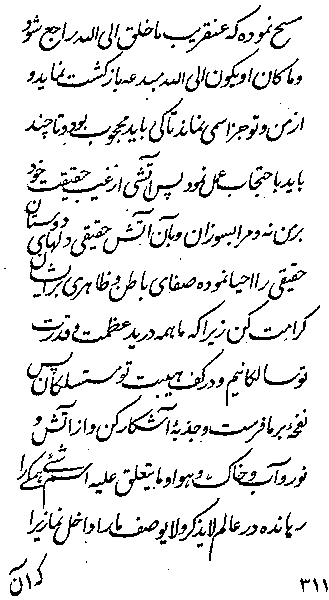 مسح نموده که عنقریب ما خلق الی الله راجع شود
و ما کان او یکون الی الله مبدعه بازگشت نماید و
از من و تو جز اسمی نماند تا کی باید محجوب بود و تا چند
باید باحتجاب عمل نمود پس آتشی از غیب حقیقت خود
برین نه و مرا بسوزان و بآن آتش حقیقی دلهای دوستان
حقیقی را احیا نموده صفای باطن و ظاهری برایشان
کرامت کن زیرا که ما همه در ید عظمت و قدرت
تو سالکانیم و در کف هیبت تو مستسلکان پس
نفحهٔ بر ما فرست و جذبهٔ آشکار کن و از آتش و
نور و آب و خاک و هوا و ما یتعلق علیه اسم شیء همگی را
رهانده در عالم لا یذکر و لا یوصف ما را داخل نما زیرا
که آن
۳۱۱